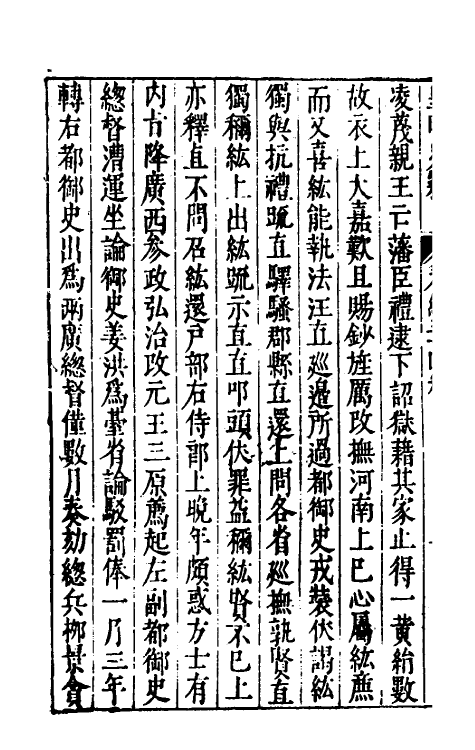 凌茂親王亡藩臣禮逮下詔獄藉其家止得一黄絹數
故衣上大嘉歎且賜鈔旌厲改撫河南上已心屬紘廉
而又喜紘能執法汪直廵邉所過都御史戎裝伏謁紘
獨與抗禮䟽直驛騷郡縣直還上問各省廵撫孰賢直
獨稱紘上出紘䟽示直直叩頭伏罪益稱紘賢不已上
亦釋直不問召紘還戸部右侍郎上晚年頗惑方士有
内㫖降廣西參政弘治改元王三原薦起左副都御史
總督漕運坐論御史姜洪爲臺省論駁罰俸一月三年
轉右都御史出爲兩廣總督僅數月奏劾總兵栁景貪